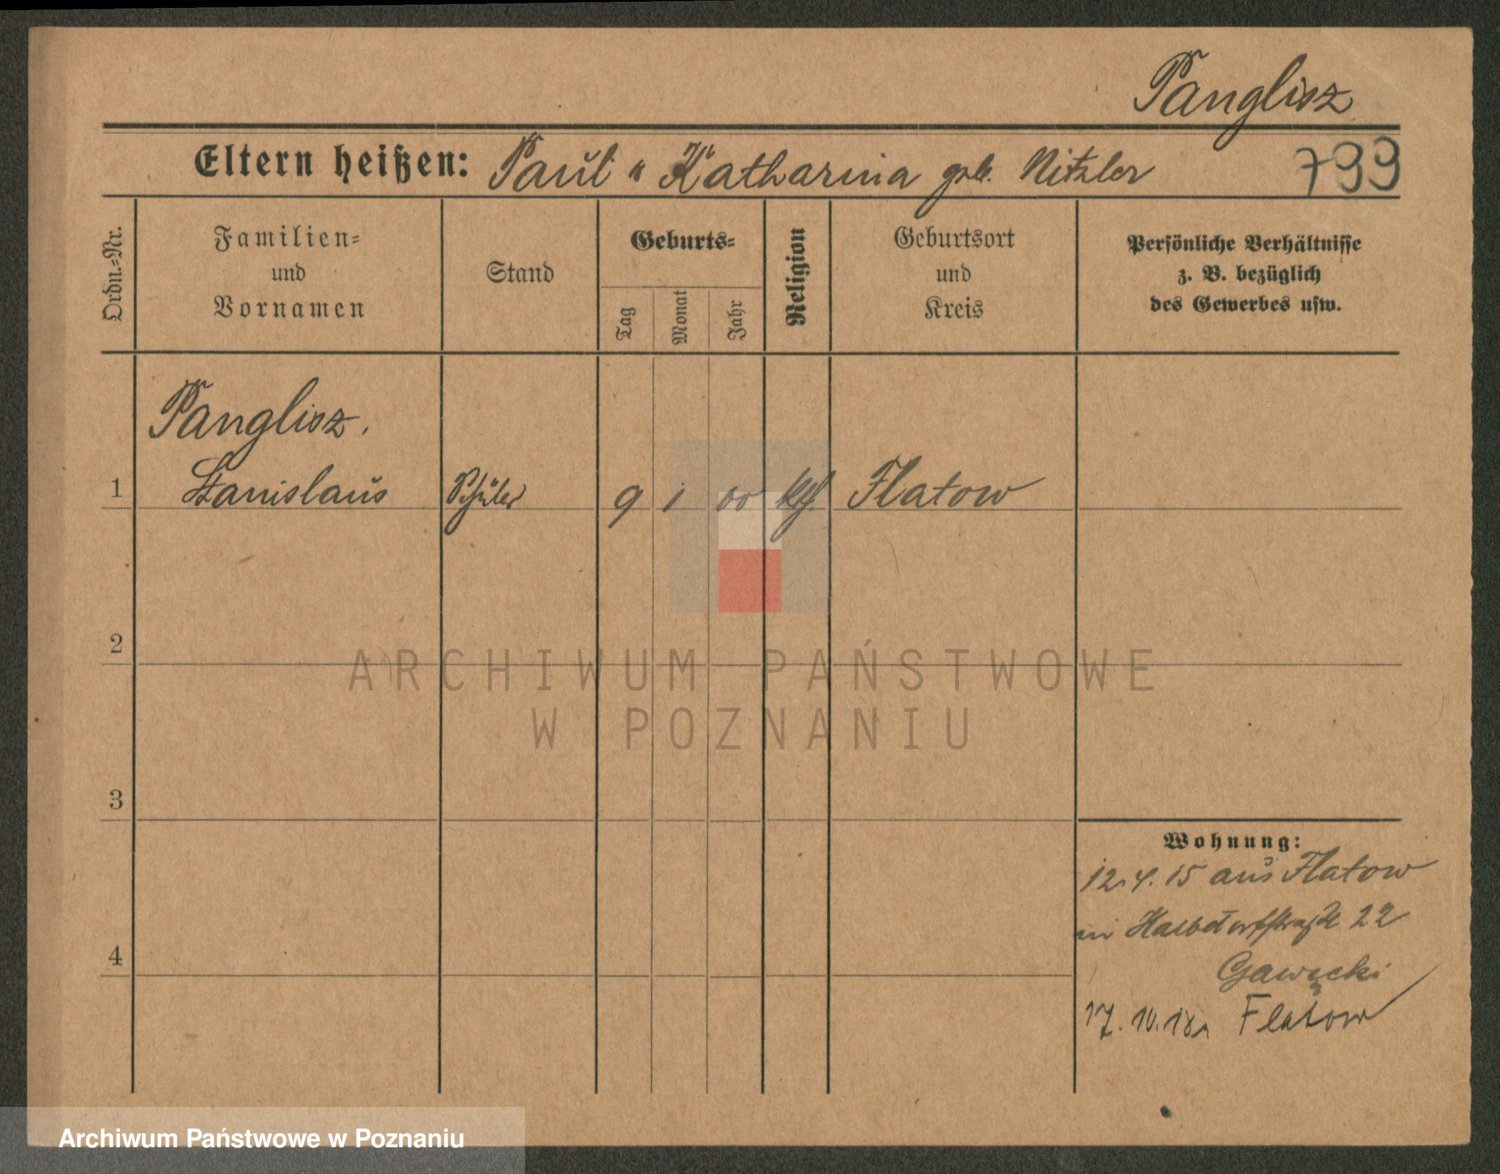 Panglisz
Eltern heißen: Paul u Katharina geb. Nitzler
799
Ordn.=Nr.
Familien=
und
Vornamen
Stand
Geburts=
Tag
Monat
Jahr
Religion
Geburtsort
und
Kreis
Persönliche Verhältnisse
z. B. bezüglich
des Gewerbes usw.
Panglisz.
1 Stanislaus Schüler 9 1 00 kth. Flatow
2
3
4
Wohnung:
12.4.15 aus Flatow
in Halbdorfstraße 22
Gawęcki
17.10.18 Flatow
ARCHIWUM PAŃSTWOWE
W POZNANIU
Archiwum Państwowe w Poznaniu